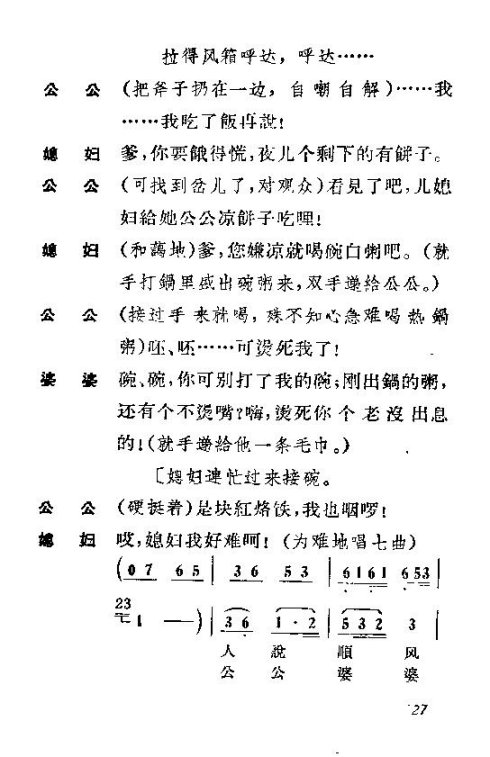 拉得风箱呼达，呼达……
公　公　(把斧子扔在一边，自嘲自解)……我
……我吃了飯再說！
媳　妇　爹，你要餓得慌，夜儿个剩下的有餅子。
公　公　(可找到岔儿了，对观众)看見了吧，儿媳
妇給她公公凉餅子吃哩！
媳　妇　(和藹地)爹，您嫌凉就喝碗白粥吧。(就
手打鍋里盛出碗粥来，双手递給公公。)
公　公　(接过手来就喝，殊不知心急难喝热鍋
粥)呸、呸……可烫死我了！
婆　婆　碗、碗，你可别打了我的碗；刚出鍋的粥，
还有个不烫嘴？嗨，烫死你个老沒出息
的！(就手递給他一条毛巾。)
〔媳妇連忙过来接碗。
公　公　(硬挺着)是块紅烙铁，我也咽啰！
媳　妇　哎，媳妇我好难呵！(为难地唱七曲)
(0 7　6 5 | 3 6　5 3 | 6 1 6 1　6 5 3 |
23
1　—) | 3 6　1 · 2 | 5 3 2　3 |
人　說　順　风
公　公　婆　婆
27